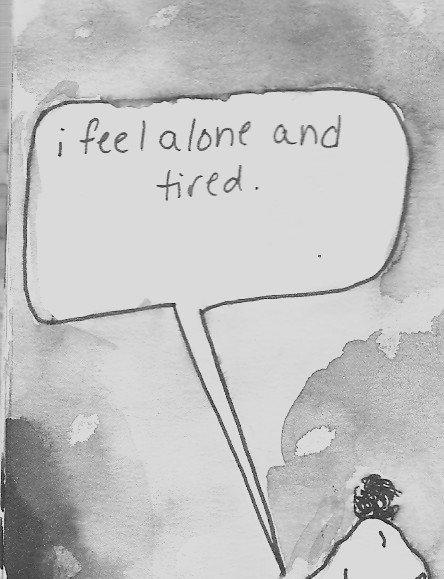 i feel alone and
tired.